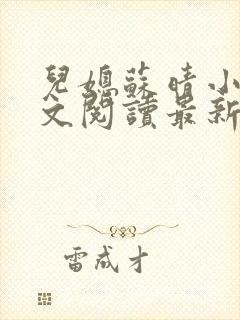 兒媳蘇晴小
文閱讀最新
雷成才